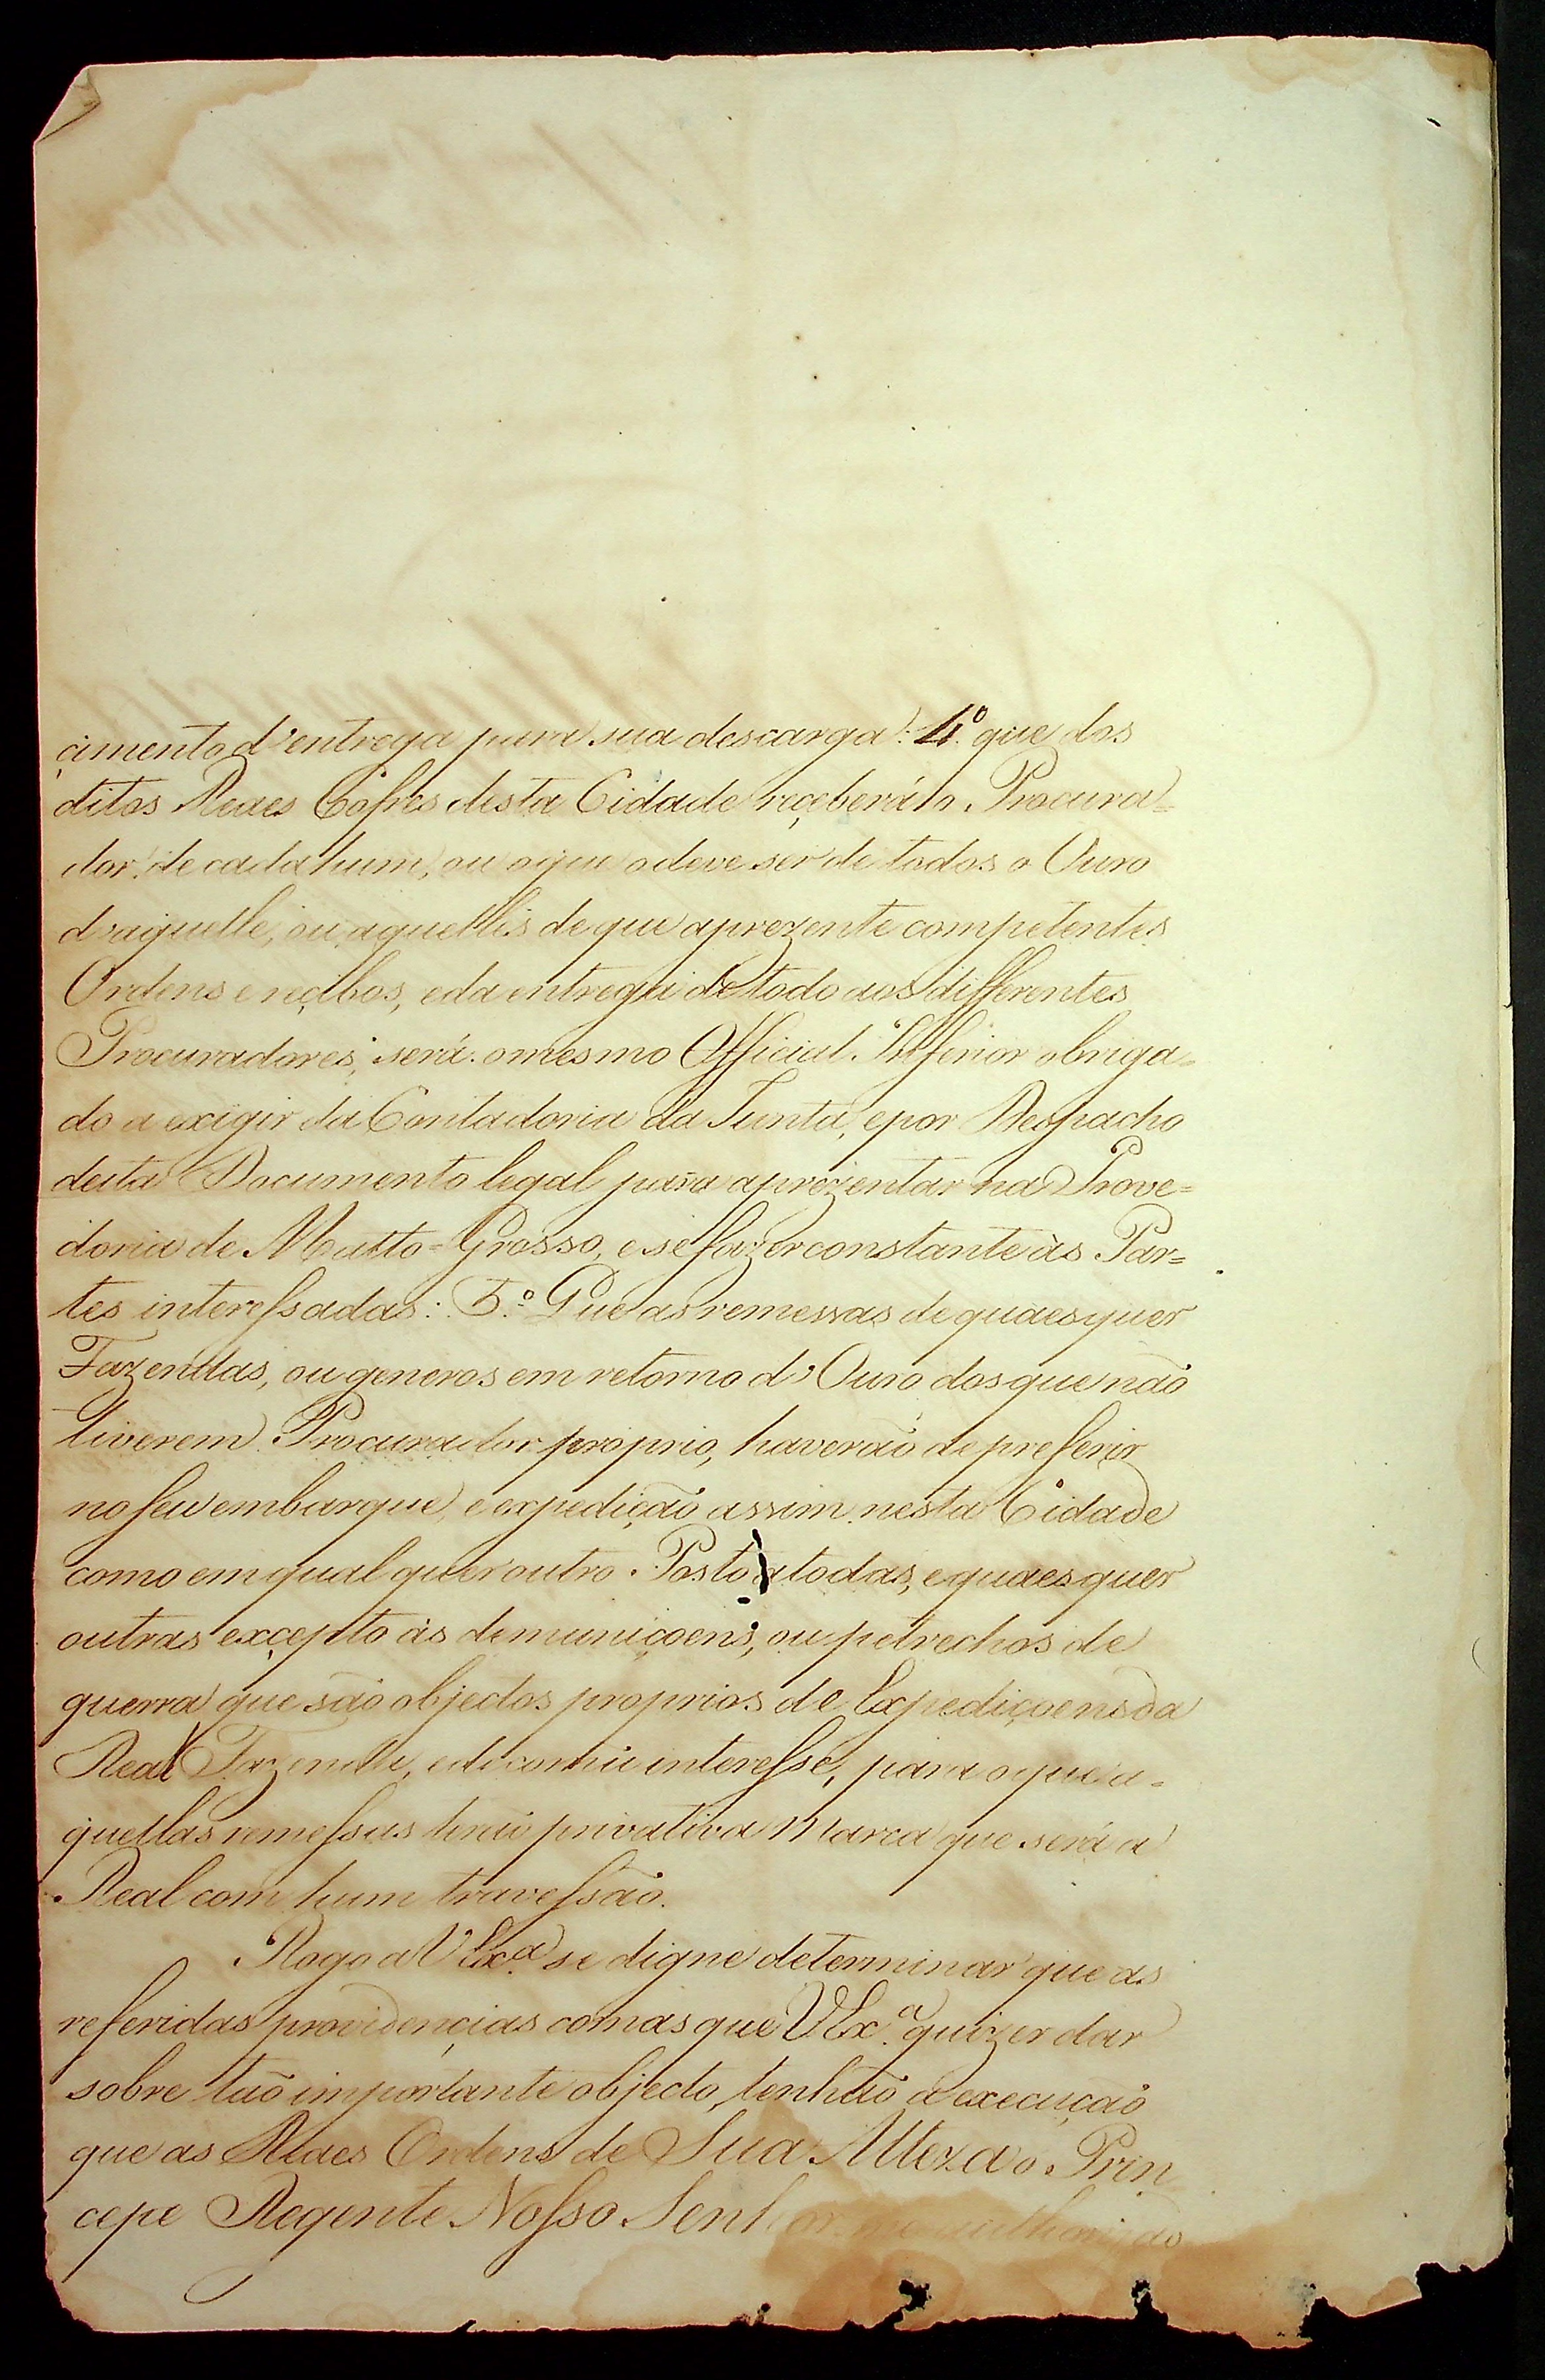 cimento d'entrega para sua descarga: 4º que dos
ditos Reaes Cofres desta Cidade receberá o Procura=
dor de cada hum, ou o que o deve ser de todos o Ouro
d'aquelle, ou aquelles de que aprezente competentes
Ordens e recibos, e da entrega de todo aos differentes
Procuradores, será o mesmo Official Inferior obriga=
do a exigir da Contadoria da Junta, e por Despacho
desta Documento legal para aprezentar na Prove=
doria de Matto=Grosso, e se fazer constante ás Par=
tes interessadas: 5º Que as remessas de quaesquer
Fazendas, ou generos em retorno d'Ouro dos que não
tiverem Procurador proprio, haverão de preferir
no seu embarque, e expedição assim nesta Cidade
como em qual quer outro Posto a todas, e quaes quer
outras excepto ás de municoens, ou petrechos de
guerra que são objectos proprios de Expediçoens da
Real Fazenda, e de comũ interesse, para o que a=
quellas remessas terão privativa Marca que será a
Real com hum travessão.
Rogo a V Exª se digne determinar que as
referidas providencias com as que V Exª quizer dar
sobre tão importante objecto, tenhão a execução
que as Reaes Ordens de Sua Alteza o Prin
cepe Regente Nosso Senhor me authorizão